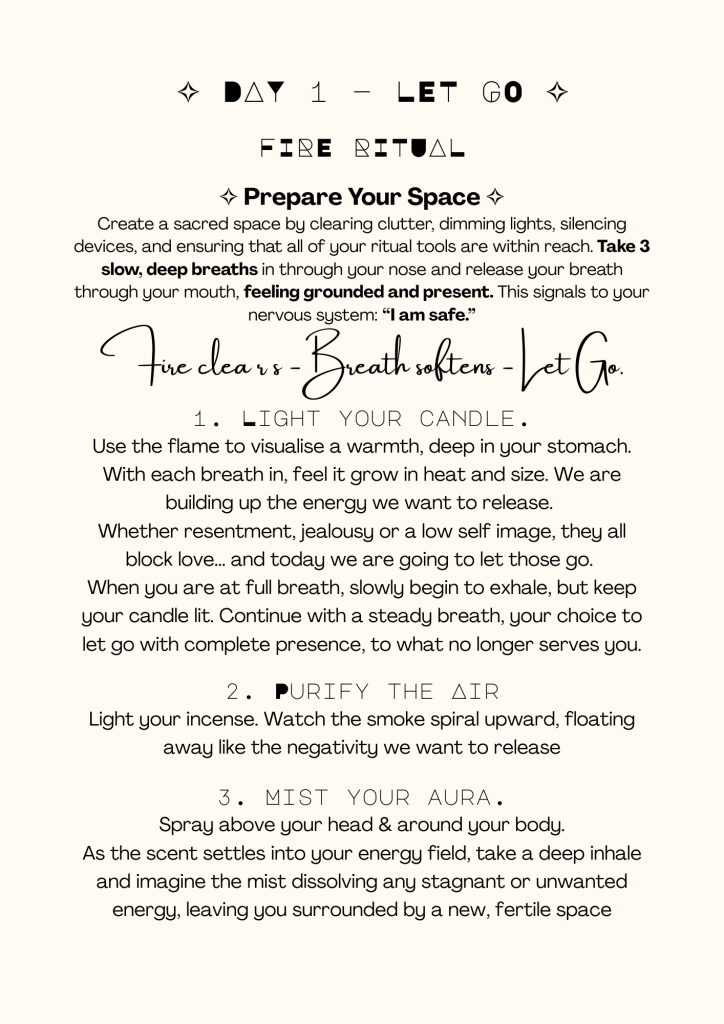 ✧ DAY 1 – LET GO ✧
FIRE RITUAL
✧ Prepare Your Space ✧
Create a sacred space by clearing clutter, dimming lights, silencing
devices, and ensuring that all of your ritual tools are within reach. Take 3
slow, deep breaths in through your nose and release your breath
through your mouth, feeling grounded and present. This signals to your
nervous system: “I am safe.”
Fire clears - Breath softens - Let Go.
1. LIGHT YOUR CANDLE.
Use the flame to visualise a warmth, deep in your stomach.
With each breath in, feel it grow in heat and size. We are
building up the energy we want to release.
Whether resentment, jealousy or a low self image, they all
block love... and today we are going to let those go.
When you are at full breath, slowly begin to exhale, but keep
your candle lit. Continue with a steady breath, your choice to
let go with complete presence, to what no longer serves you.
2. PURIFY THE AIR
Light your incense. Watch the smoke spiral upward, floating
away like the negativity we want to release
3. MIST YOUR AURA.
Spray above your head & around your body.
As the scent settles into your energy field, take a deep inhale
and imagine the mist dissolving any stagnant or unwanted
energy, leaving you surrounded by a new, fertile space